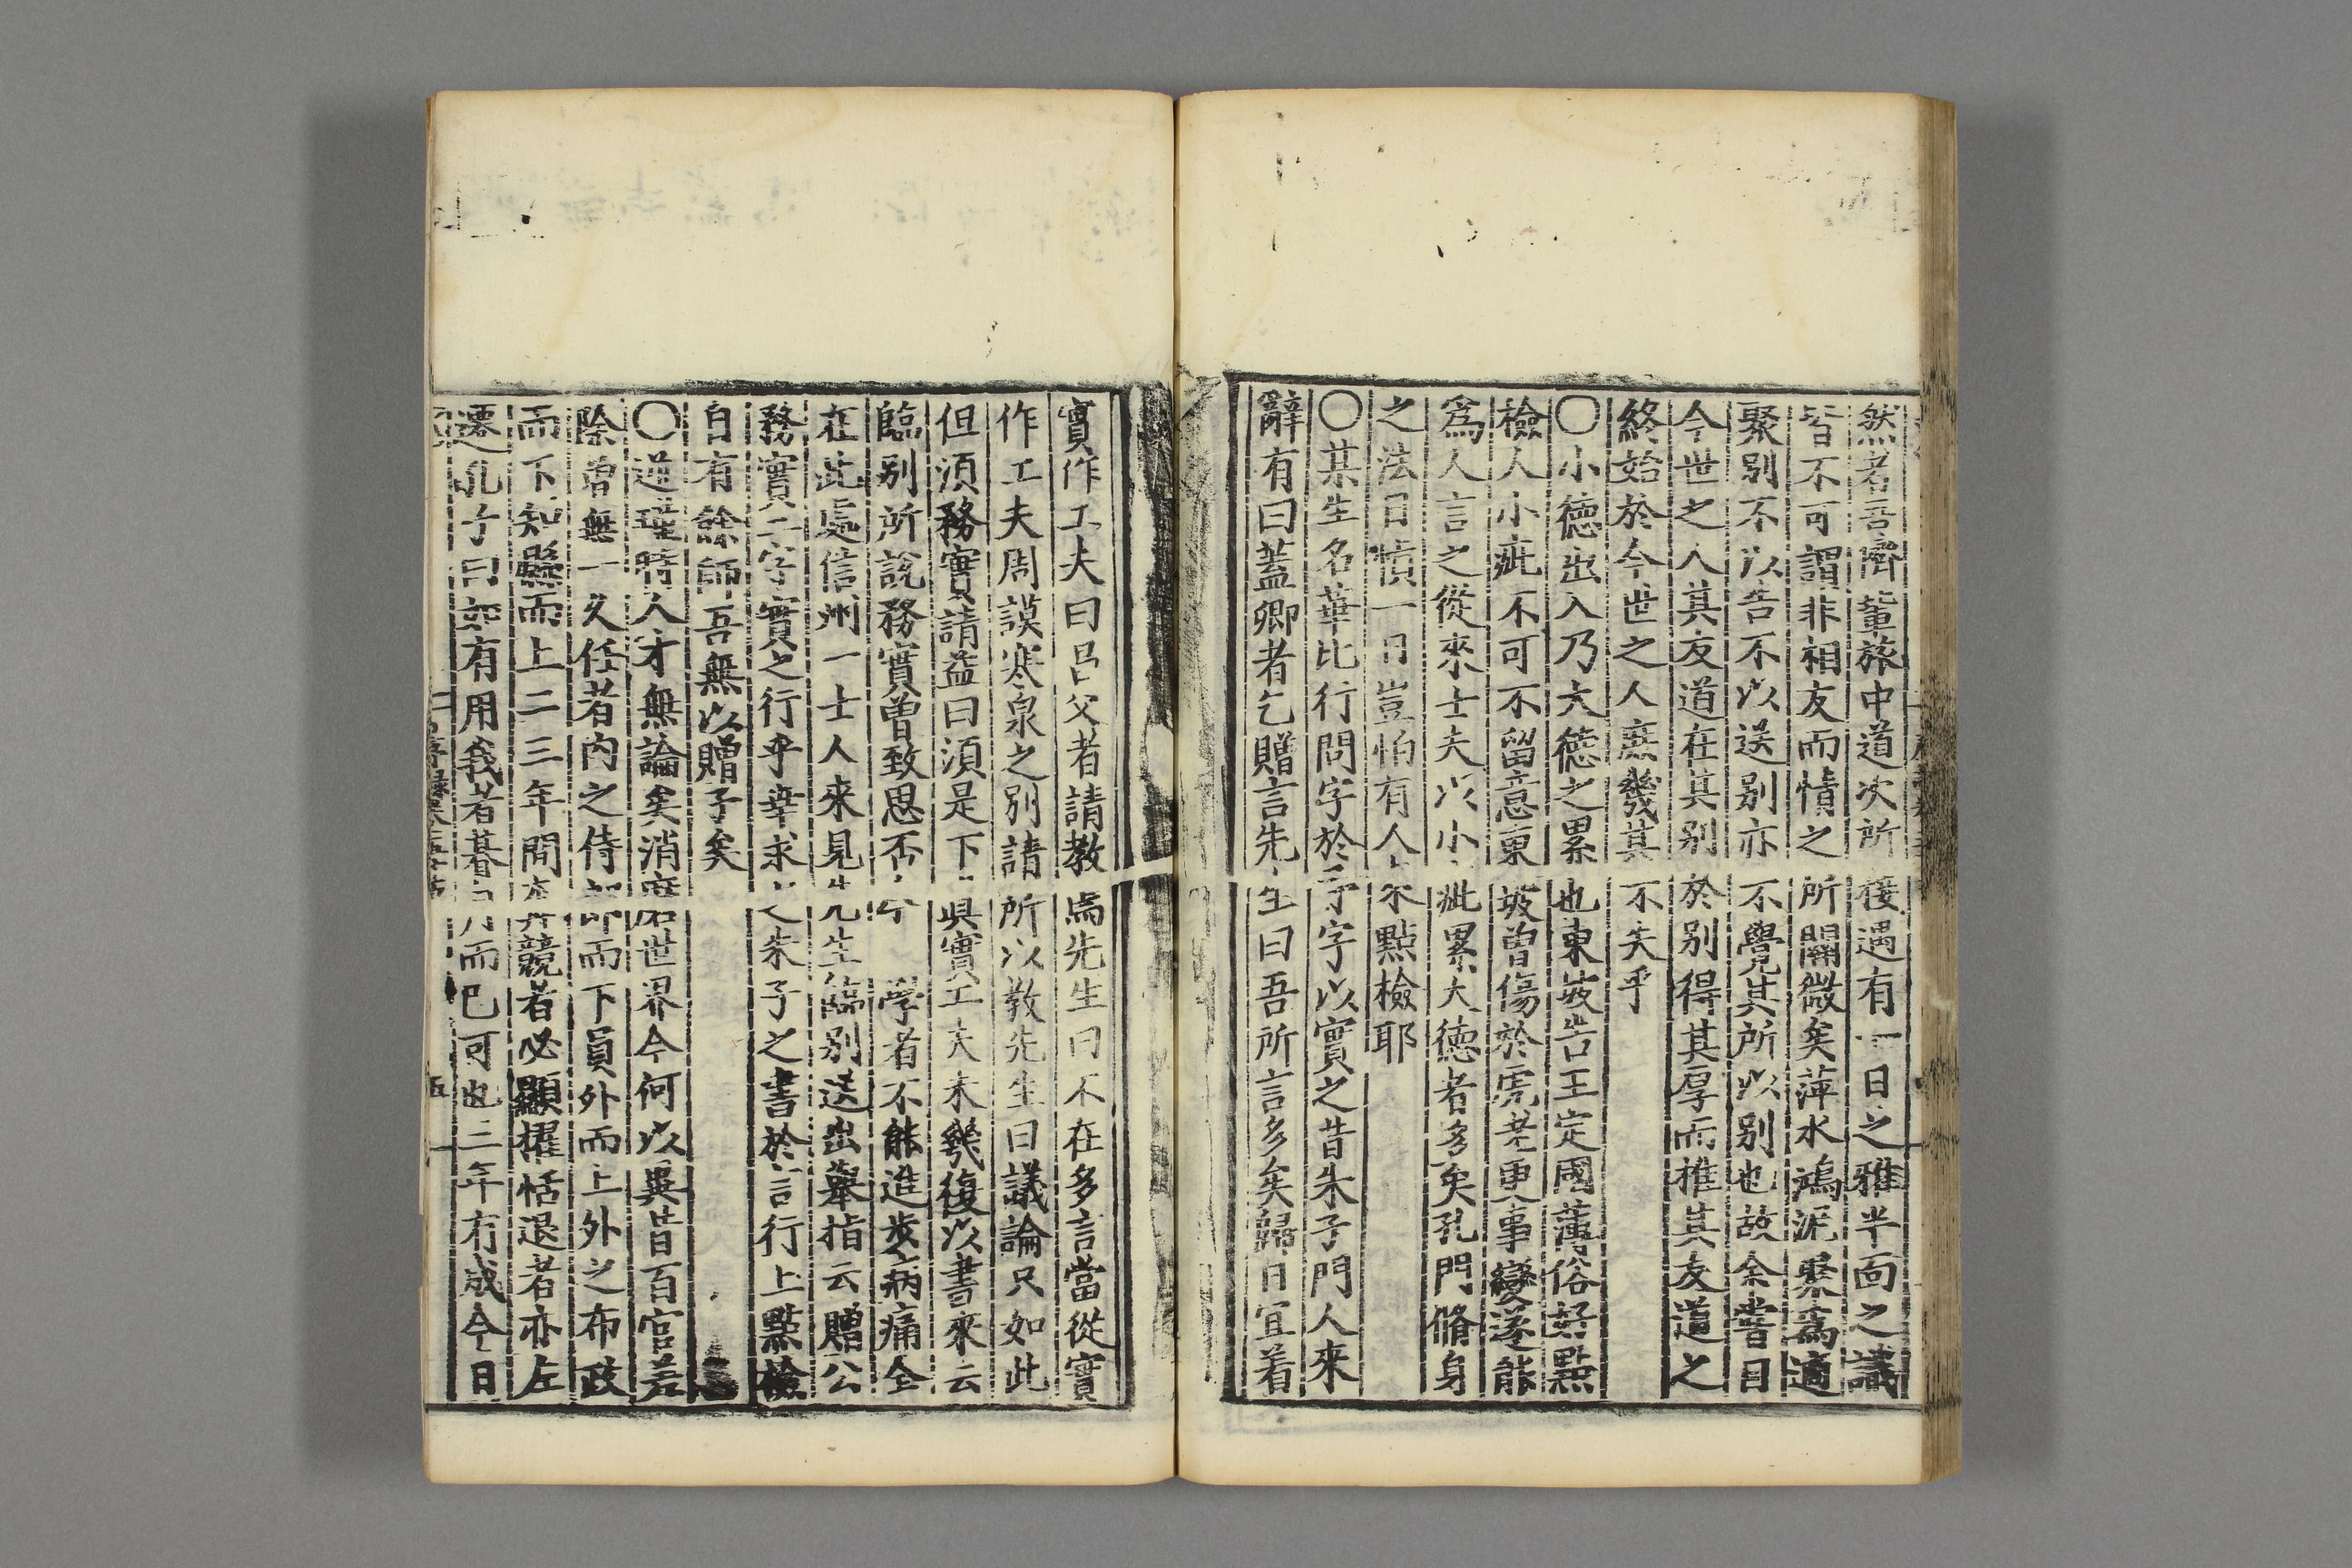 然者吾儕輩旅中道次所後遇有一日之雅半面之識
皆不可謂非相友而情之所關微矣萍水鴻泥聚爲適
聚別不以告不以送別亦不覺其所以別也故余嘗目
今世之人其友道在其別於別得其厚而推其友道之
終始於今世之人庶幾其不失乎
○小德出入乃大德之累也東坡告王定國薄俗好點
檢人小疵不可不留意東坡曾傷於虎老更事變遂能
爲人言之從來士夫以小疵累大德者多矣孔門脩身
之法日愼一日豈怕有人來點檢耶
○某生名華比行問字於予予字以實之昔朱子門人來
辭有曰蓋卿者乞贈言先生曰吾所言多矣歸日宜着
實作工夫曰呂父者請教焉先生曰不在多言當從實
作工夫周謨寒泉之別請所以教先生曰議論只如此
但須務實請益曰須是下眞實工夫未幾復以書來云
臨別所說務實曾致思否今學者不能進步病痛全
在此處信州一士人來見先生臨別送出舉指云贈公
務實二字實之行乎幸求之朱子之書於言行上點檢
自有餘師吾無以贈子矣
○邇進時人才無論矣消磨世界今何以異昔百官差
除曾無一久任者內之侍郎而下員外而上外之布政
而下知縣而上二三年間奔競者必顯擢恬退者亦左
遷孔子曰如有用我者朞月而已可也三年有成今日